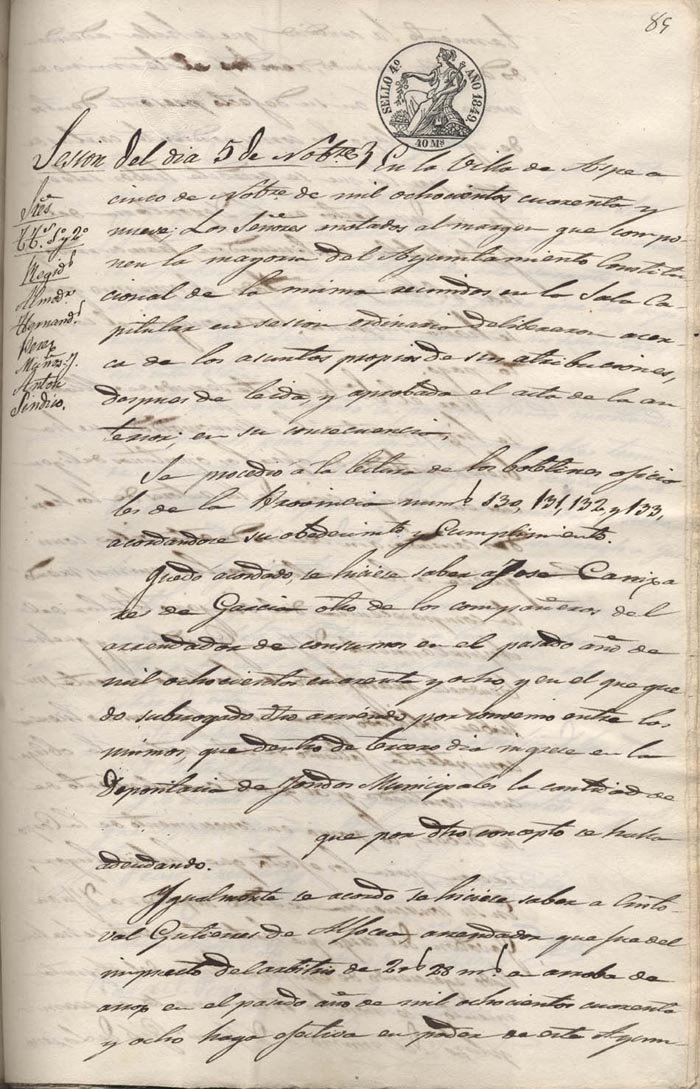 89
SELLO 4º AÑO 1849.
40 Ms
Sesion del dia 5 de Nobre.} En la Villa de Aspe a
cinco de Nobre. de mil ochocientos cuarenta y
nueve; Los Señores notados al margen que compo-
nen la mayoria del Ayuntamiento Constitu
cional de la misma reunidos en la Sala Ca-
pitular en sesion ordinaria deliberaron acer-
ca de los asuntos propios de sus atribuciones,
despues de leida y aprobada el acta de la an-
terior; en su consecuencia,
Sres.
TTs. 1º y 2º
Regids
Almodr
Hernands
Perez
Muños. y
Anton
Sindico.
Se procedio a la lectura de los boletines oficia
les de la Provincia nums 130, 131, 132, y 133,
acordandose su obedecimto y Cumplimiento.
Quedó acordado, se hiciese saber a Jose Cañiza
res de Garcia otro de los compañeros del
arrendador de consumos en el pasado año de
mil ochocientos cuarenta y ocho y en el que que
dó subrogado dho arriendo por convenio entre los
mismos, que dentro de tercero dia ingrese en la
Depositaria de fondos Municipales la cantidad de
que por dho concepto se halla
adeudando.
Ygualmente se acordó se hiciese saber a Cristo-
val Gutierres de, arrendador que fue del
impuesto del arbitrio de 2 rs 28 ms en arroba de
arroz en el pasado año de mil ochocientos cuarenta
y ocho haga efectiva en poder de este Ayun-